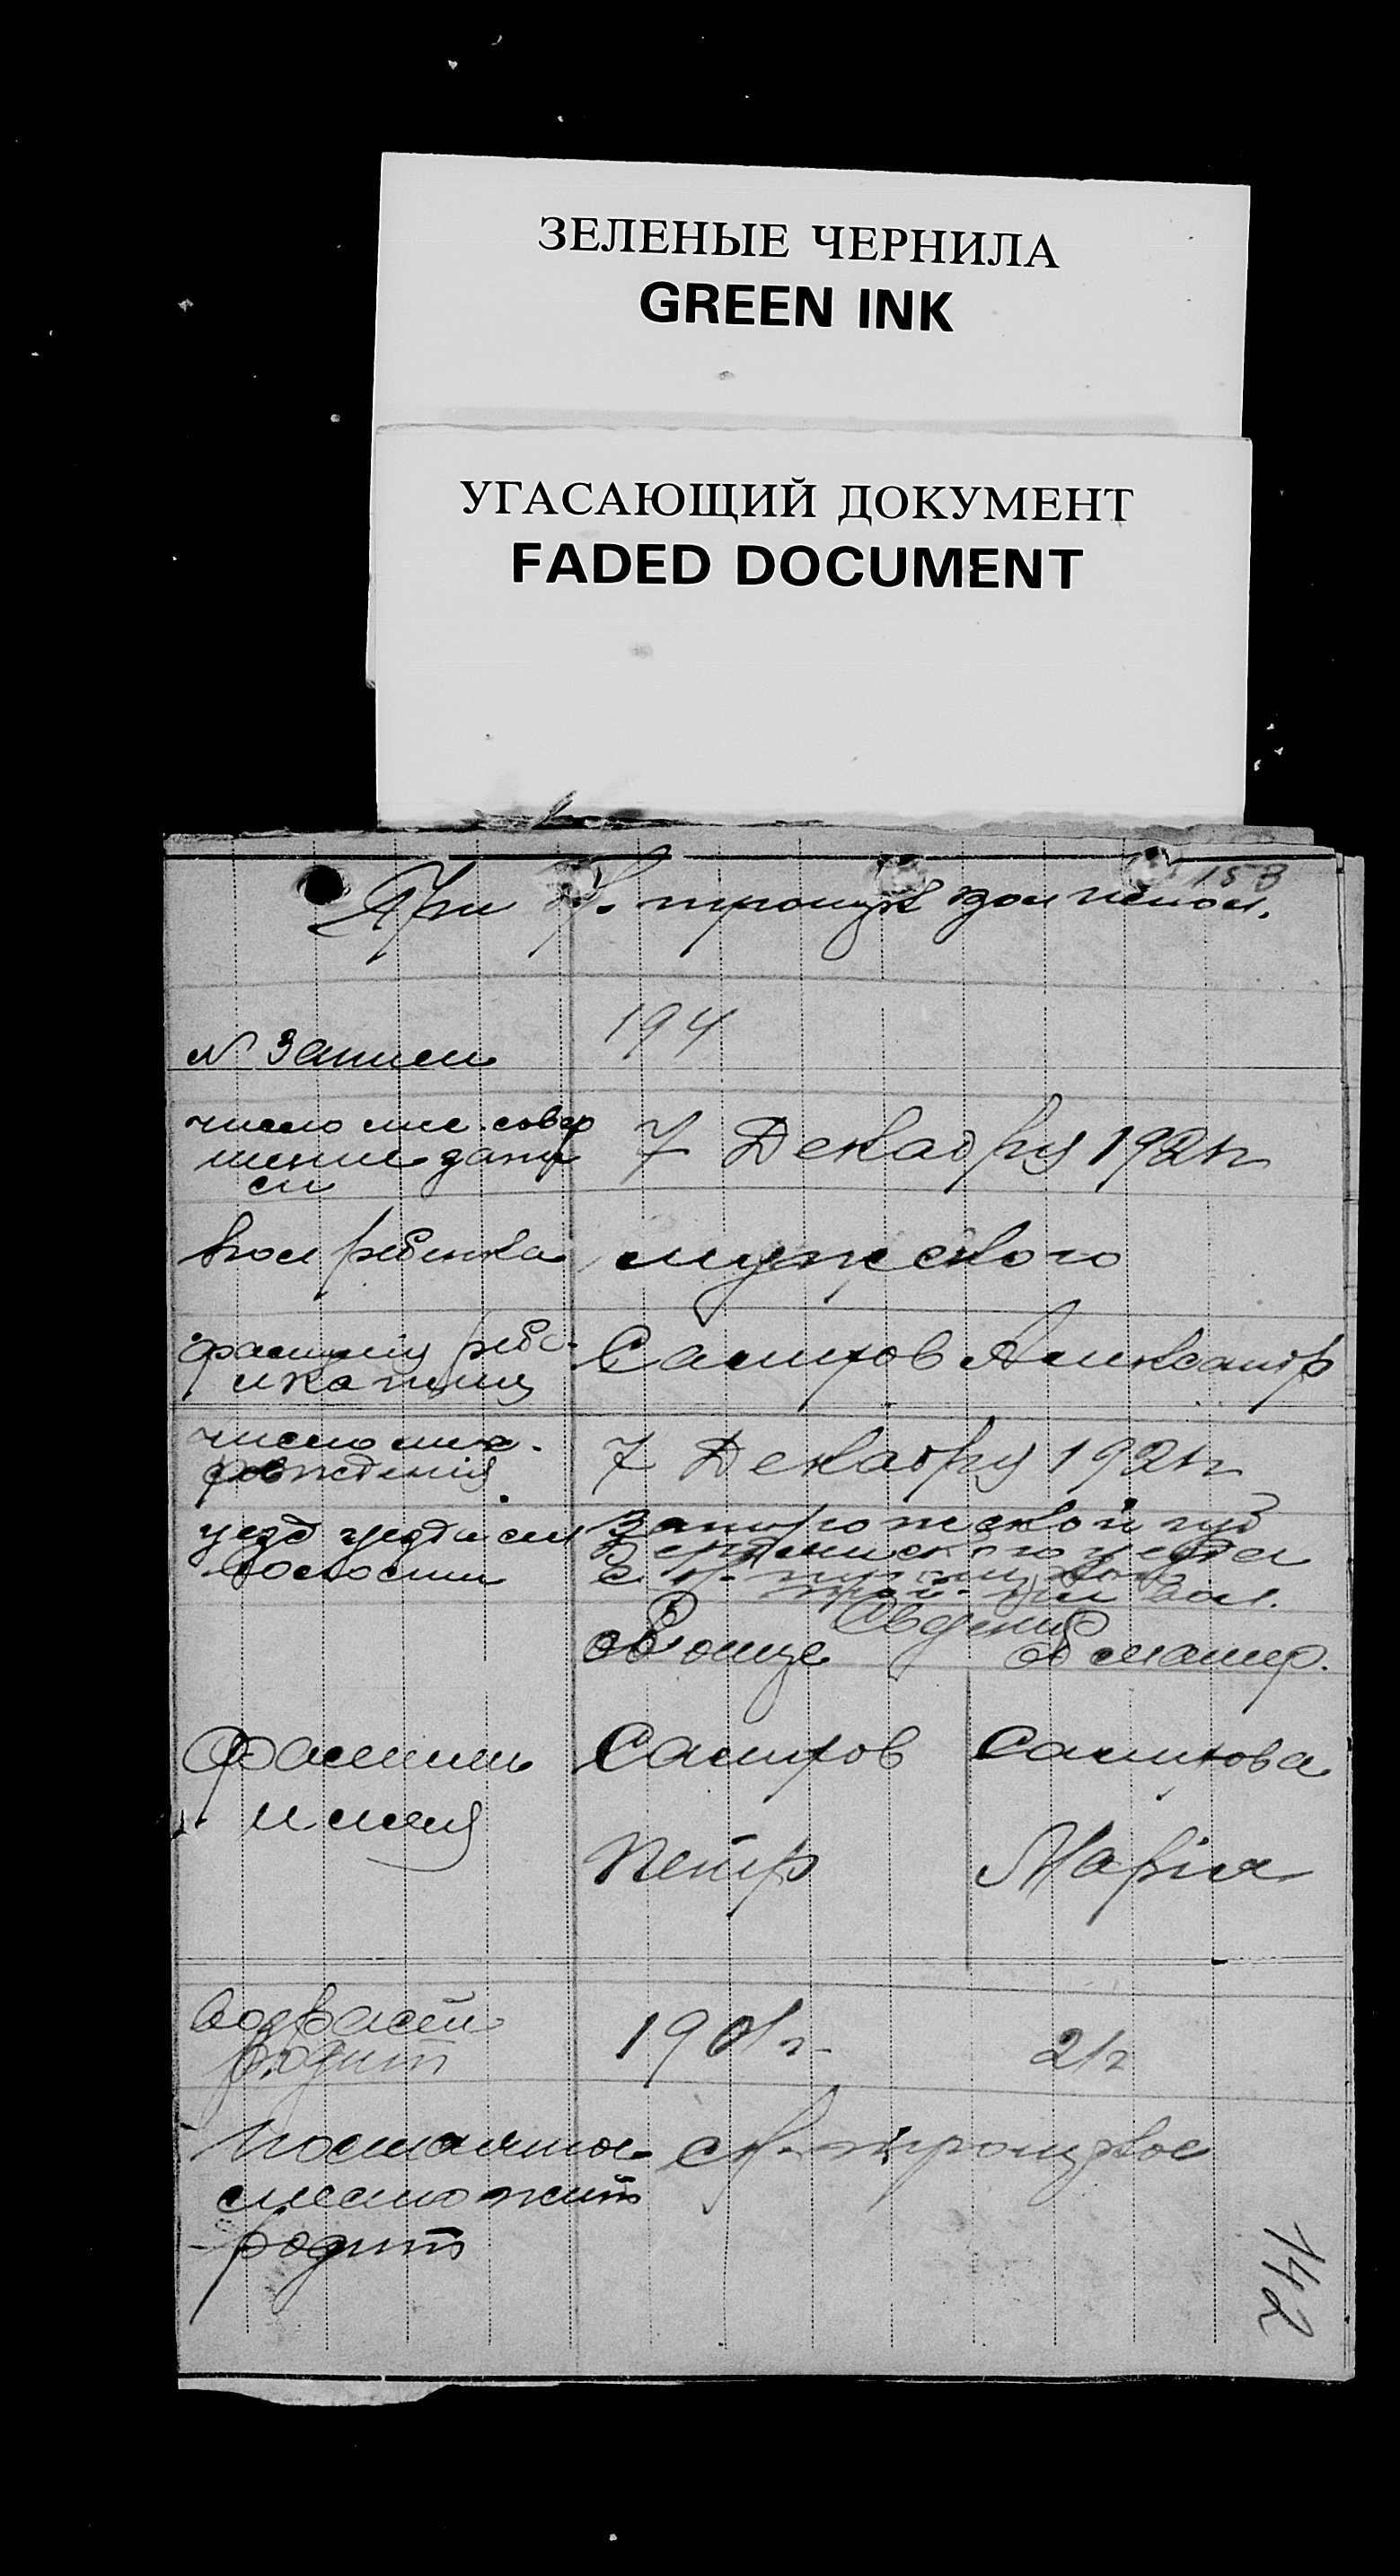 ЗЕЛЕНЫЕ ЧЕРНИЛА
GREEN INK
УГАСАЮЩИЙ ДОКУМЕНТ
FADED DOCUMENT
153
При троицк исполком.
N Записи 194
число мес. совер
шения запи
си
7 Декабря 1921г
пол ребенка мужского
фамилия ребе-
нка имя
Самухов Александр
число мес.
рождения
7 Декабря 1921г
уезд
волости
Запорожской губ
уезда
вол.
Сведения
об отце
о матер.
Фамилия
и имя
Самухов
Самухова
Петр
Марія
Возраст
родит
1901г
21г
Постоянное
место жит
родит
св. троицкое
142